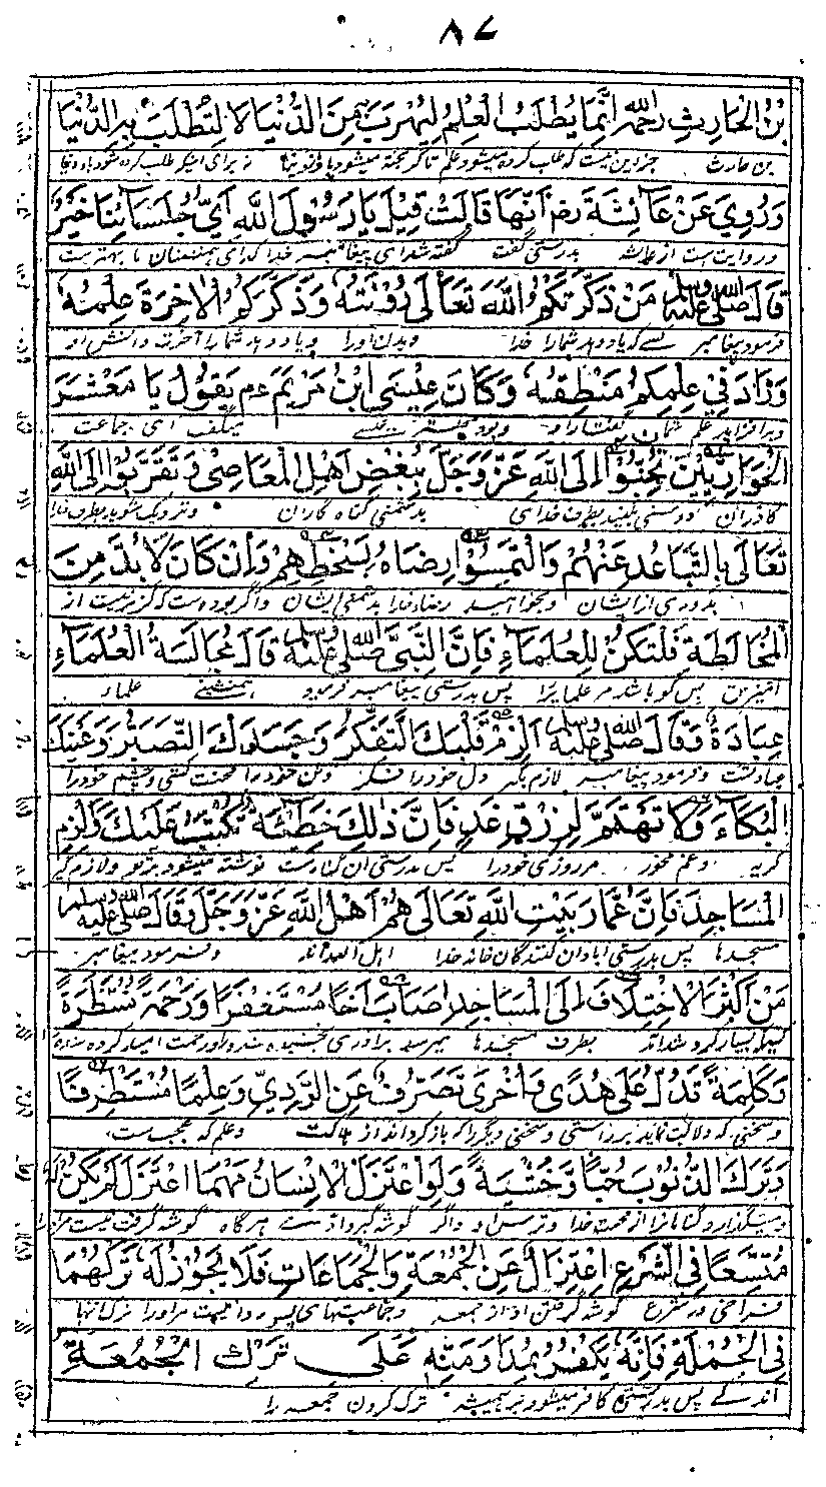 ٨٧
بْنُ الْحَارِثِ رَاحِمَهُ اللّٰهُ اِنَّمَا يُطْلَبُ الْعِلْمُ لِيُهْرَبَ بِهٖ مِنَ الدُّنْيَا لَا لِتُطْلَبَ بِهِ الدُّنْيَا
بن حارث جز این نیست که طلب کرده میشود علم تا گریخته میشود با و از دنیا نه برای اینکه طلب کرده شود باو دنیا
وَرُوِيَ عَنْ عَائِشَةَ رض اَنَّهَا قَالَتْ قِيْلَ يَا رَسُوْلَ اللّٰهِ اَيُّ جُلَسَائِنَا خَيْرٌ
و روایت است از عایشه بدرستی گفت گفته شد ای پیغامبر خدا کدامی همنشینان ما بهتر است
قَالَ صلى الله عليه وسلم مَنْ ذَكَّرَتْكُمُ اللّٰهَ تَعَالٰى رُؤْيَتُهٗ وَذَكَّرَكُمُ الْاٰخِرَةَ عِلْمُهٗ
فرمود پیغامبر کسے که یاد دهد شمارا خدا دیدن اورا و یاد دهد شمارا آخرت دانش او
وَزَادَ فِيْ عِلْمِكُمْ مَنْطِقُهٗ وَكَانَ عِيْسَى ابْنُ مَرْيَمَ عم يَقُوْلُ يَا مَعْشَرَ
و بیافزاید علم شمان گفتار او و بود عیسے میگفت ای جماعت
الْحَوَارِيِّيْنَ تَحَبَّبُوْا اِلَى اللّٰهِ عَزَّ وَجَلَّ بِبُغْضِ اَهْلِ الْمَعَاصِيْ وَتَقَرَّبُوْا اِلَى اللّٰهِ
گاذران دوستی بکنید بطرف خدای بدشمنی گناه گاران و نزدیک شوید بطرف خدا
تَعَالٰى بِالتَّبَاعُدِ عَنْهُمْ وَالْتَمِسُوْا رِضَاهُ بِسَخَطِهِمْ وَاِنْ كَانَ لَا بُدَّ مِنَ
بدوری از ایشان و بخواهید رضاء خدا بدشمنی ایشان و اگر بوده است که گزیر نیست از
الْمُخَالَطَةِ فَلْتَكُنْ لِلْعُلَمَاءِ فَاِنَّ النَّبِيَّ صلى الله عليه وسلم قَالَ مُجَالَسَةُ الْعُلَمَاءِ
آمیزش پس گو باشد مر علما را پس بدرستی پیغامبر فرمود همنشینے علماء
عِبَادَةٌ وَقَالَ صلى الله عليه وسلم اَلْزِمْ قَلْبَكَ التَّفَكُّرَ وَجَسَدَكَ التَّصَبُّرَ وَعَيْنَكَ
عبادتست و فرمود پیغامبر لازم بگیر دل خود را فکر و تن خود را محنت کشی و چشم خود را
الْبُكَاءَ وَلَا تَهْتَمَّ لِرِزْقِ غَدٍ فَاِنَّ ذٰلِكَ خَطِيْئَةٌ تُكْتَبُ عَلَيْكَ وَاَلْزِمِ
گریه و غم مخور مر روزی فردا پس بدرستی آن گناه است نوشته میشود بر تو و لازم گیر
الْمَسَاجِدَ فَاِنَّ عُمَّارَ بَيْتِ اللّٰهِ تَعَالٰى هُمْ اَهْلُ اللّٰهِ عَزَّ وَجَلَّ وَقَالَ صلى الله عليه وسلم
مسجدها پس بدرستی آبادان کنندگان خانه خدا اهل الله اند و فرمود پیغامبر
مَنْ اَكْثَرَ الْاِخْتِلَافَ اِلَى الْمَسَاجِدِ اَصَابَ اَخًا مُسْتَغْفَرًا وَرَحْمَةً مُنْتَظَرَةً
کسیکه بسیار کرد شد آمد بطرف مسجدها میرسد برادری بخشیده شده را و رحمت امیدکرده شده
وَكَلِمَةً تَدُلُّ عَلٰى هُدًى وَاُخْرٰى تَصْرِفُ عَنِ الرَّدِيِّ وَعِلْمًا مُسْتَظْرَفًا
و سخنی که دلالت نماید بر راستی و سخنی دیگر را که باز گرداند از هلاکت و علم که عجیب است
وَتَرَكَ الذُّنُوْبَ حُبًّا وَخَشْيَةً وَلَوِ اعْتَزَلَ الْاِنْسَانُ مَهْمَا اعْتَزَلَ لَمْ يَكُنْ لَهٗ
و میگذارد گناه را از محبت خدا و ترس او و اگر گوشه گیرد انسان هرگاه گوشه گرفت نیست مر او را
مُتَّسَعًا فِي الشَّرْعِ اِعْتِزَالٌ عَنِ الْجُمُعَةِ وَالْجَمَاعَاتِ فَلَا يَجُوْزُ لَهٗ تَرْكُهُمَا
فراخی در شرع گوشه گرفتن از جمعه و جماعتهای پس روا نیست مر او را ترک آنها
فِي الْجُمْلَةِ فَاِنَّهٗ يَكْفُرُ بِمُدَاوَمَتِهٖ عَلٰى تَرْكِ الْجُمُعَةِ
اندکے پس بدرستی کافر میشود بر همیشه ترک کردن جمعه را